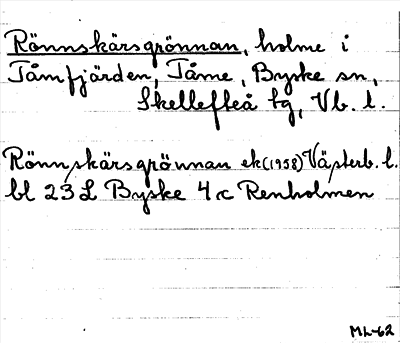 Rönnskärsgrönnan, holme i
Tåmfjärden, Tåme, Byske sn,
Skellefteå tg, Vb. l.
Rönnskärsgrönnan ek (1958) Västerb. l.
bl 23 L Byske 4 c Renholmen
ML-62